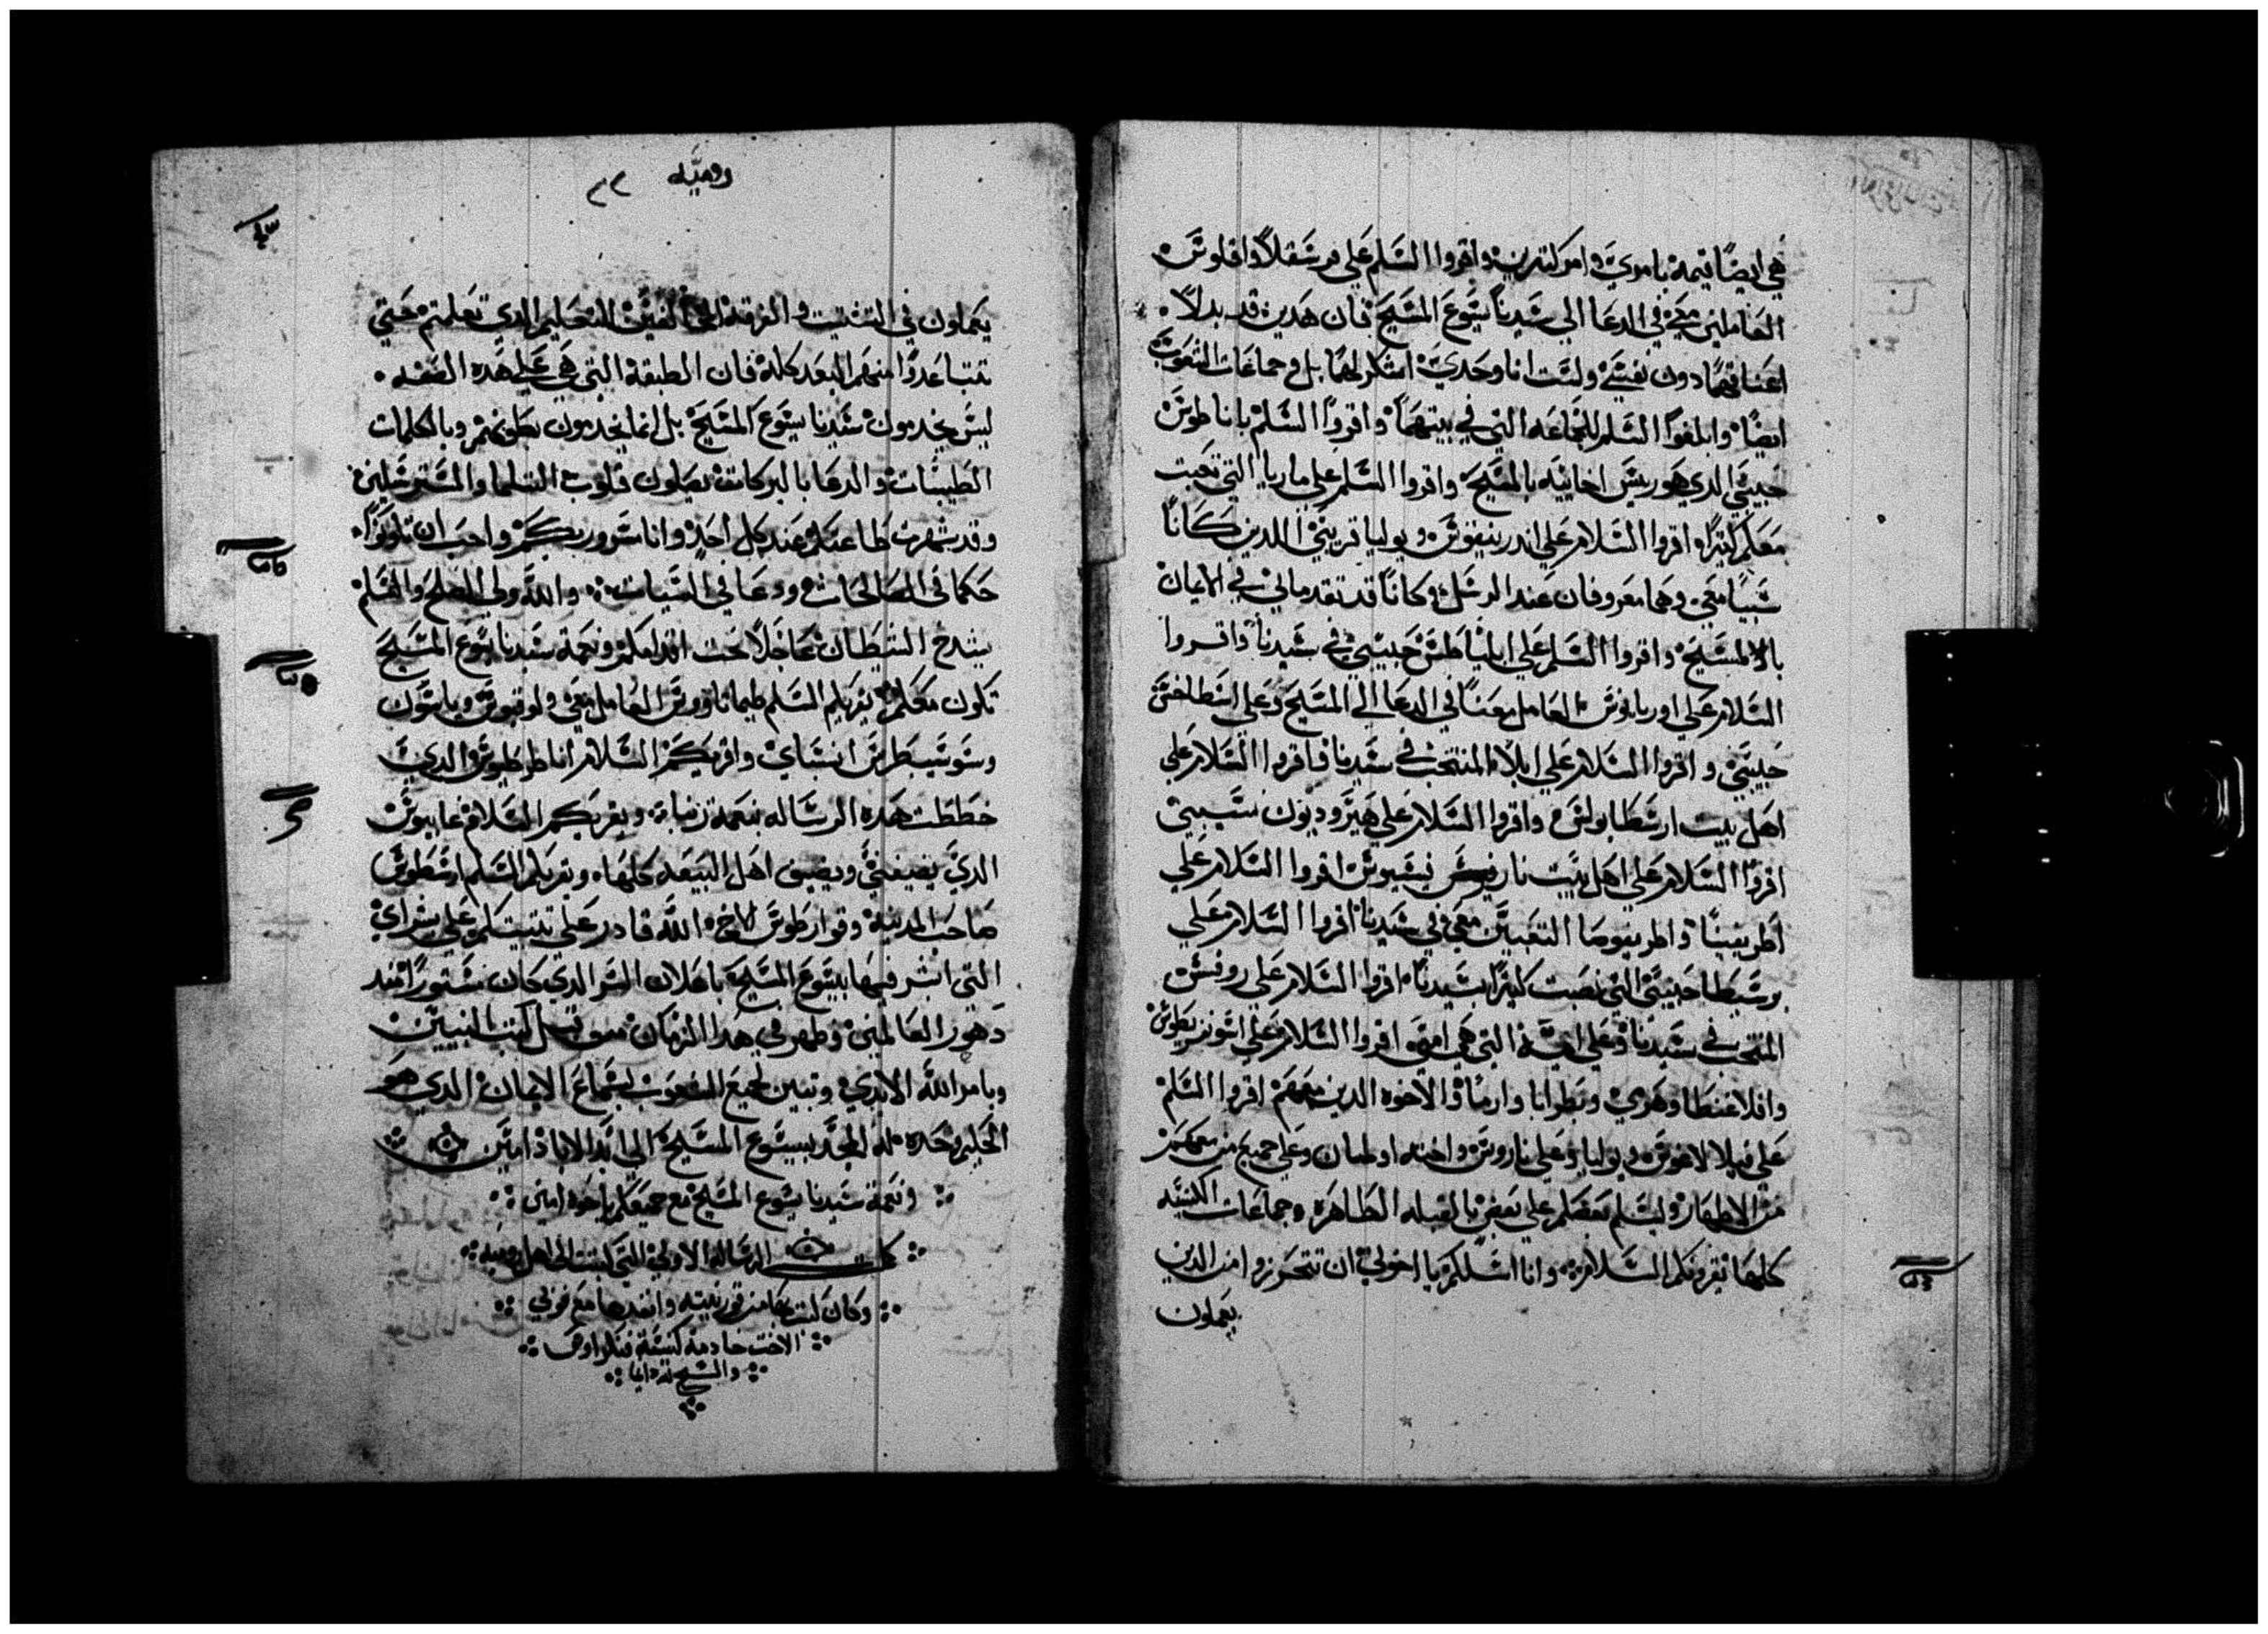 هي ايضًا قيمة بامري وامر كتيرين واقروا السلم على فرسقلا واقلوس
العاملين معي في الدعا الي سيدنا يسوع المسيح فان هدين قد بدلا
اعناقهما دون نفسي ولست انا وحدي اشكرلهما بل وجماعات الشعوب
ايضًا وابلغوا السلم للجماعه التي في بيتهما واقروا السلم باناطوس
حبيبي الدي هو ريس اخاييه بالمسيح واقروا السلم علي ماريا التي تعبت
معكم كتيرًا اقروا السلام علي اندرنيقوس ويوليا قريبي اللدين كانا
سبيا معي وهما معروفان عند الرسل وكانا قد تقدماني في الايمان
بالمسيح واقروا السلم علي ابلياطس حبيبي في سيدنا واقروا
السلام علي اوربانوس العامل معنا في الدعا الي المسيح وعلي اسطاخس
حبيبي واقروا السلام علي ابلا المنتخب في سيدنا فاقروا السلام علي
اهل بيت ارسطابولس واقروا السلام علي هيروديون نسيبي
اقروا السلام علي اهل بيت نارقيسس اقروا السلام علي
اطريفينا واطريفوصا التعبتين معي في سيدنا اقروا السلام علي
برسيطا حبيبتي التي نصبت كتيرًا بسيدنا اقروا السلام علي روفس
المنتخب في سيدنا وعلي امه التي هي امي اقروا السلام علي اسونقريطوس
وافلاغنطا وهرمي وبطرابا وارما والاخوه الدين معهم اقروا السلم
علي فيلالاغوس ويوليا وعلي ناروس واخته اولمبان وعلي جميع من معهم
من الاطهار وليسلم بعضكم علي بعض بالقبله الطاهرة وجماعات الكنيسه
كلها تقرونكم السلام وانا اسلكم يا اخوتي ان تتحرزوا من الدين
يعملون
روميه ٢٢
يعملون في التشتيت والفرقة التعليم الدي تعلمتم حتي
تتباعدوا منهم البعد كله فان الطبقة التي هي علي هده الصفه
ليس يخدمون سيدنا يسوع المسيح بل انما يخدمون بطونهم وبالكلمات
الطيبات والدعا بالبركات يضلون قلوب السلما والمسترسلين
وقد شهرت طاعتكم عند كل احد وانا مسرور بكم واحب ان تكونوا
حكما في الصالحات وودعا في السيات والله ولي الصلح والسلم
يشدخ الشيطان عاجلًا تحت اقدامكم ونعمة سيدنا يسوع المسيح
تكون معكم يقريكم السلم طيماتاوس العامل معي ولوقيوس وياسون
وسوسيبطرس انسباي واقريكم السلام انا طرطيوس الدي
خططت هده الرساله بنعمة ربنا ويقريكم السلام غاييوس
الدي يضيفني ويضيف اهل البيعه كلها ويقريكم السلم ارسطوس
صاحب المدينة وقوارطوس الاخ الله قادر علي تثبيتكم علي بشراي
التي ابشر فيها بيسوع المسيح باعلان السر الدي كان مستورًا مند
دهور العالمين وظهر في هدا الزمان من قبل كتب النبيين
وبامر الله الابدي وتبين لجميع الشعوب لسماع الايمان الدي هو
الحكيم وحده له المجد بيسوع المسيح الي ابد الاباد امين
ونعمة سيدنا يسوع المسيح مع جميعكم يا اخوه امين
كملت الرساله الاولي التي كتبت الي اهل روميه
وكان كتب بها من قورنتيه وانفدها مع فوبي
الاخت خادمة كنيسة قنكراوس
والسبح لله دايما